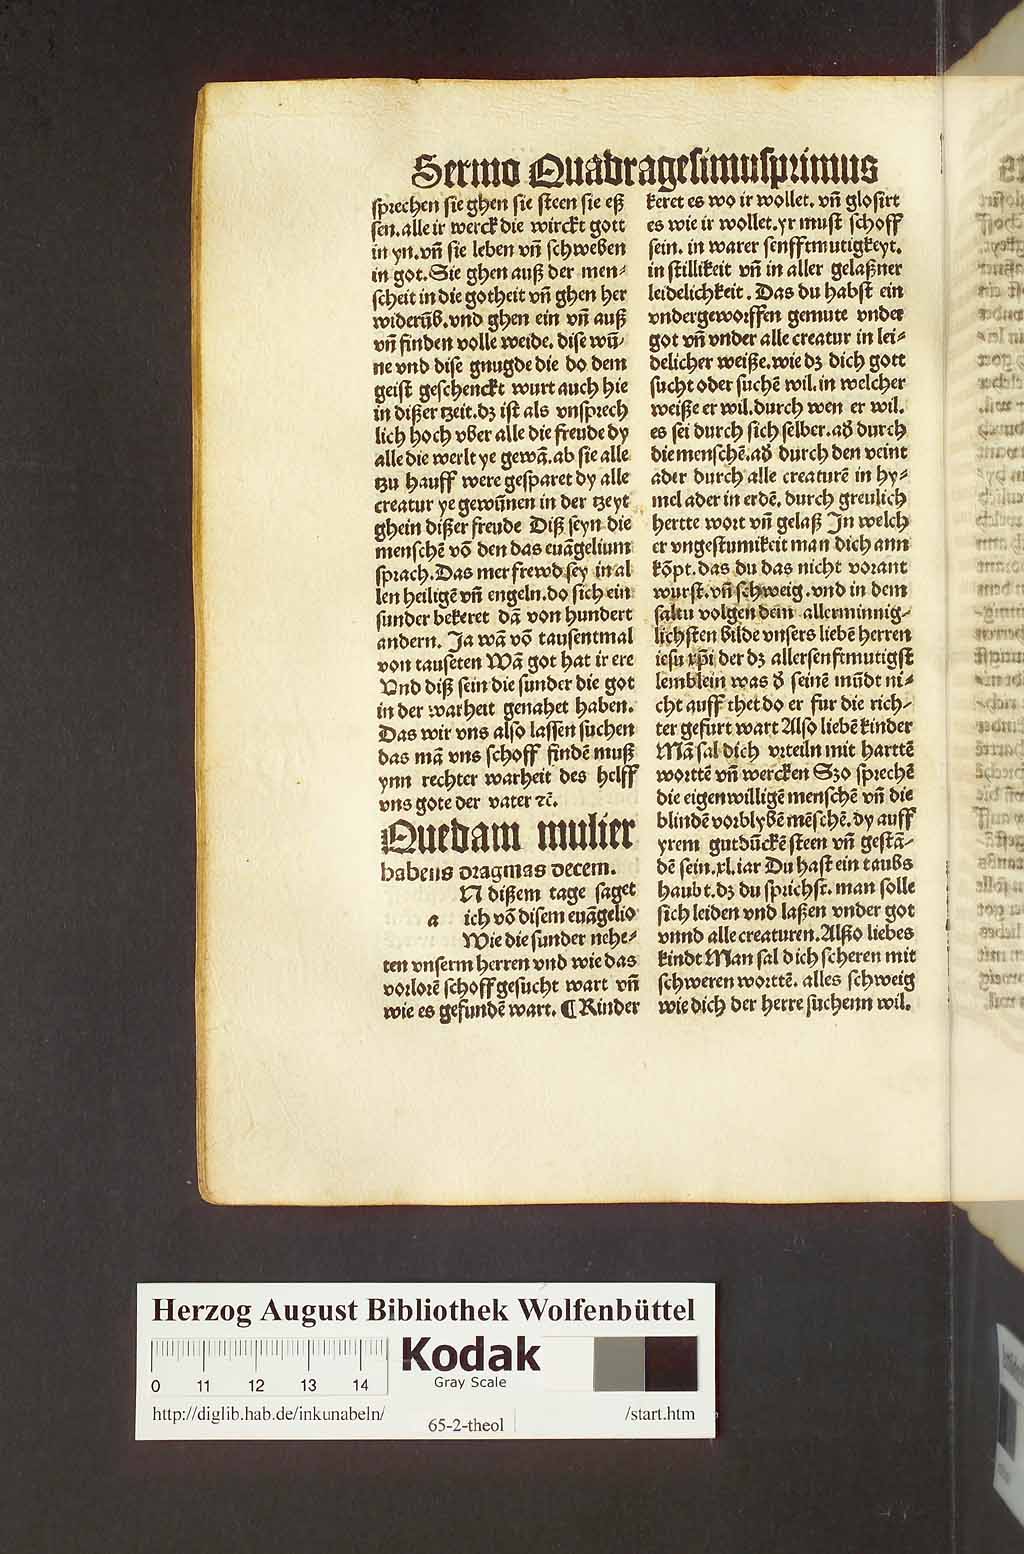 Sermo Quadragesimusprimus
sprechen sie ghen sie steen sie eß
sen. alle ir werck die wirckt gott
in yn. vn̄ sie leben vn̄ schweben
in got. Sie ghen auß der men⸗
scheit in die gotheit vn̄ ghen her
widerūb. vnd ghen ein vn̄ auß
vn̄ finden volle weide. dise wū⸗
ne vnd dise gnugde die do dem
geist geschenckt wurt auch hie
in dißer tzeit. dz ist als vnsprech
lich hoch vber alle die freude dy
alle die werlt ye gewā. ab sie alle
tzu hauff were gesparet dy alle
creatur ye gewūnen in der tzeyt
ghein dißer freude Diß seyn die
menschē vō den das euāgelium
sprach. Das mer frewd sey in al
len heiligē vn̄ engeln. do sich ein
sunder bekeret dā von hundert
andern. Ja wā vō tausentmal
von tauseten Wā got hat ir ere
Vnd diß sein die sunder die got
in der warheit genahet haben.
Das wir vns also lassen suchen
das mā vns schoff findē muß
ynn rechter warheit des helff
vns gote der vater ⁊c̄.
Quedam mulier
habens dragmas decem.
N dißem tage saget
a ich vō disem euāgelio
Wie die sunder nehe⸗
ten vnserm herren vnd wie das
vorlorē schoff gesucht wart vn̄
wie es gefundē wart. ¶ Kinder
keret es wo ir wollet. vn̄ glosirt
es wie ir wollet. yr must schoff
sein. in warer senfftmutigkeyt.
in stillikeit vn̄ in aller gelaßner
leidelichkeit. Das du habst ein
vndergeworffen gemute vnder
got vn̄ vnder alle creatur in lei⸗
delicher weiße. wie dz dich gott
sucht oder suchē wil. in welcher
weiße er wil. durch wen er wil.
es sei durch sich selber. ad̕ durch
die menschē. ad̕ durch den veint
ader durch alle creaturē in hy⸗
mel ader in erdē. durch greulich
hertte wort vn̄ gelaß Jn welch
er vngestumikeit man dich ann
kōpt. das du das nicht vorant
wurst. vn̄ schweig. vnd in dem
saltu volgen dem allerminnig⸗
lichsten bilde vnsers liebē herren
iesu xp̄i der dz allersenftmutigst
lemblein was d̕ seinē mūdt ni⸗
cht auff thet do er fur die rich⸗
ter gefurt wart Also liebē kinder
Mā sal dich vrteiln mit harttē
worttē vn̄ wercken Szo sprechē
die eigenwilligē menschē vn̄ die
blindē vorblybē mēschē. dy auff
yrem gutdūckē steen vn̄ gestā⸗
dē sein. xl. iar Du hast ein taubs
haubt. dz du sprichst. man solle
sich leiden vnd laßen vnder got
vnnd alle creaturen. Alßo liebes
kindt Man sal dich scheren mit
schweren worttē. alles schweig
wie dich der herre suchenn wil.
Herzog August Bibliothek Wolfenbüttel
Kodak
Gray Scale
0 11 12 13 14
http://diglib.hab.de/inkunabeln/ 65-2-theol /start.htm